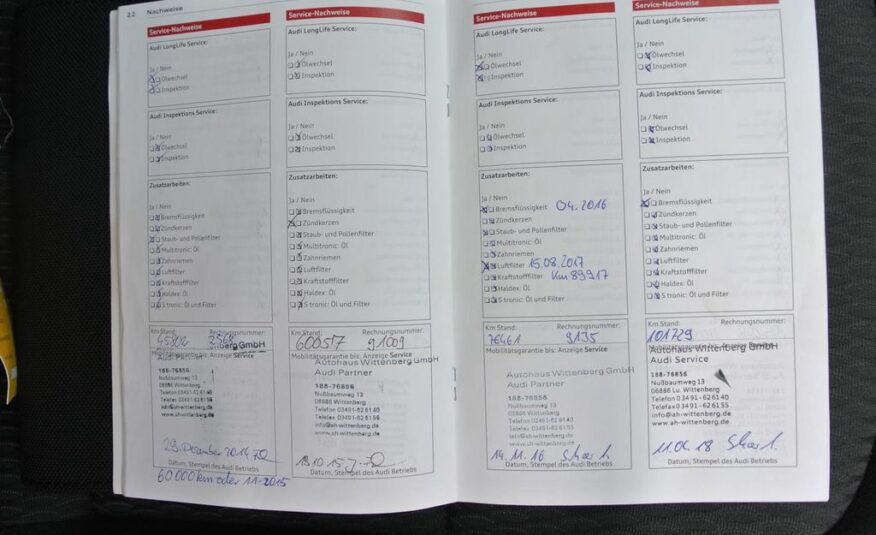 22 Nachweise
Service-Nachweise
Audi LongLife Service:
Ja / Nein
Ölwechsel
Inspektion
Audi Inspektions Service:
Ja / Nein
Ölwechsel
Inspektion
Zusatzarbeiten:
Ja / Nein
Bremsflüssigkeit
Zündkerzen
Staub- und Pollenfilter
Multitronic: Öl
Zahnriemen
Luftfilter
Kraftstofffilter
Haldex: Öl
S tronic: Öl und Filter
Km Stand: Rechnungsnummer:
45802 2568
Mobilitätsgarantie bis: Anzeige Service
Audi Partner
188-76856
Nußbaumweg 13
06886 Wittenberg
Telefon 03491-62 61 40
Telefax 03491-62 61 55
info@ah-wittenberg.de
www.ah-wittenberg.de
29. Dezember 2014
Datum, Stempel des Audi Betriebs
60.000 km oder 11-2015
Service-Nachweise
Audi LongLife Service:
Ja / Nein
Ölwechsel
Inspektion
Audi Inspektions Service:
Ja / Nein
Ölwechsel
Inspektion
Zusatzarbeiten:
Ja / Nein
Bremsflüssigkeit
Zündkerzen
Staub- und Pollenfilter
Multitronic: Öl
Zahnriemen
Luftfilter
Kraftstofffilter
Haldex: Öl
S tronic: Öl und Filter
Km Stand: Rechnungsnummer:
60057 91009
Mobilitätsgarantie bis: Anzeige Service
Autohaus Wittenberg GmbH
Audi Partner
188-76856
Nußbaumweg 13
06886 Wittenberg
Telefon 03491-62 61 40
Telefax 03491-62 61 55
info@ah-wittenberg.de
www.ah-wittenberg.de
19.10.15
Datum, Stempel des Audi Betriebs
Service-Nachweise
Audi LongLife Service:
Ja / Nein
Ölwechsel
Inspektion
Audi Inspektions Service:
Ja / Nein
Ölwechsel
Inspektion
Zusatzarbeiten:
Ja / Nein
Bremsflüssigkeit 04.2016
Zündkerzen
Staub- und Pollenfilter
Multitronic: Öl
Zahnriemen
Luftfilter 15.08.2017
Kraftstofffilter Km 89917
Haldex: Öl
S tronic: Öl und Filter
Km Stand: Rechnungsnummer:
76461 9135
Mobilitätsgarantie bis: Anzeige Service
Autohaus Wittenberg GmbH
Audi Partner
188-76856
Nußbaumweg 13
06886 Wittenberg
Telefon 03491-62 61 40
Telefax 03491-62 61 55
info@ah-wittenberg.de
www.ah-wittenberg.de
14.11.16
Datum, Stempel des Audi Betriebs
Service-Nachweise
Audi LongLife Service:
Ja / Nein
Ölwechsel
Inspektion
Audi Inspektions Service:
Ja / Nein
Ölwechsel
Inspektion
Zusatzarbeiten:
Ja / Nein
Bremsflüssigkeit
Zündkerzen
Staub- und Pollenfilter
Multitronic: Öl
Zahnriemen
Luftfilter
Kraftstofffilter
Haldex: Öl
S tronic: Öl und Filter
Km Stand: Rechnungsnummer:
101729
Autohaus Wittenberg GmbH
Audi Service
188-76856
Nußbaumweg 13
06886 Lu. Wittenberg
Telefon 03491-62 61 40
Telefax 03491-62 61 55
info@ah-wittenberg.de
www.ah-wittenberg.de
11.06.18
Datum, Stempel des Audi Betriebs